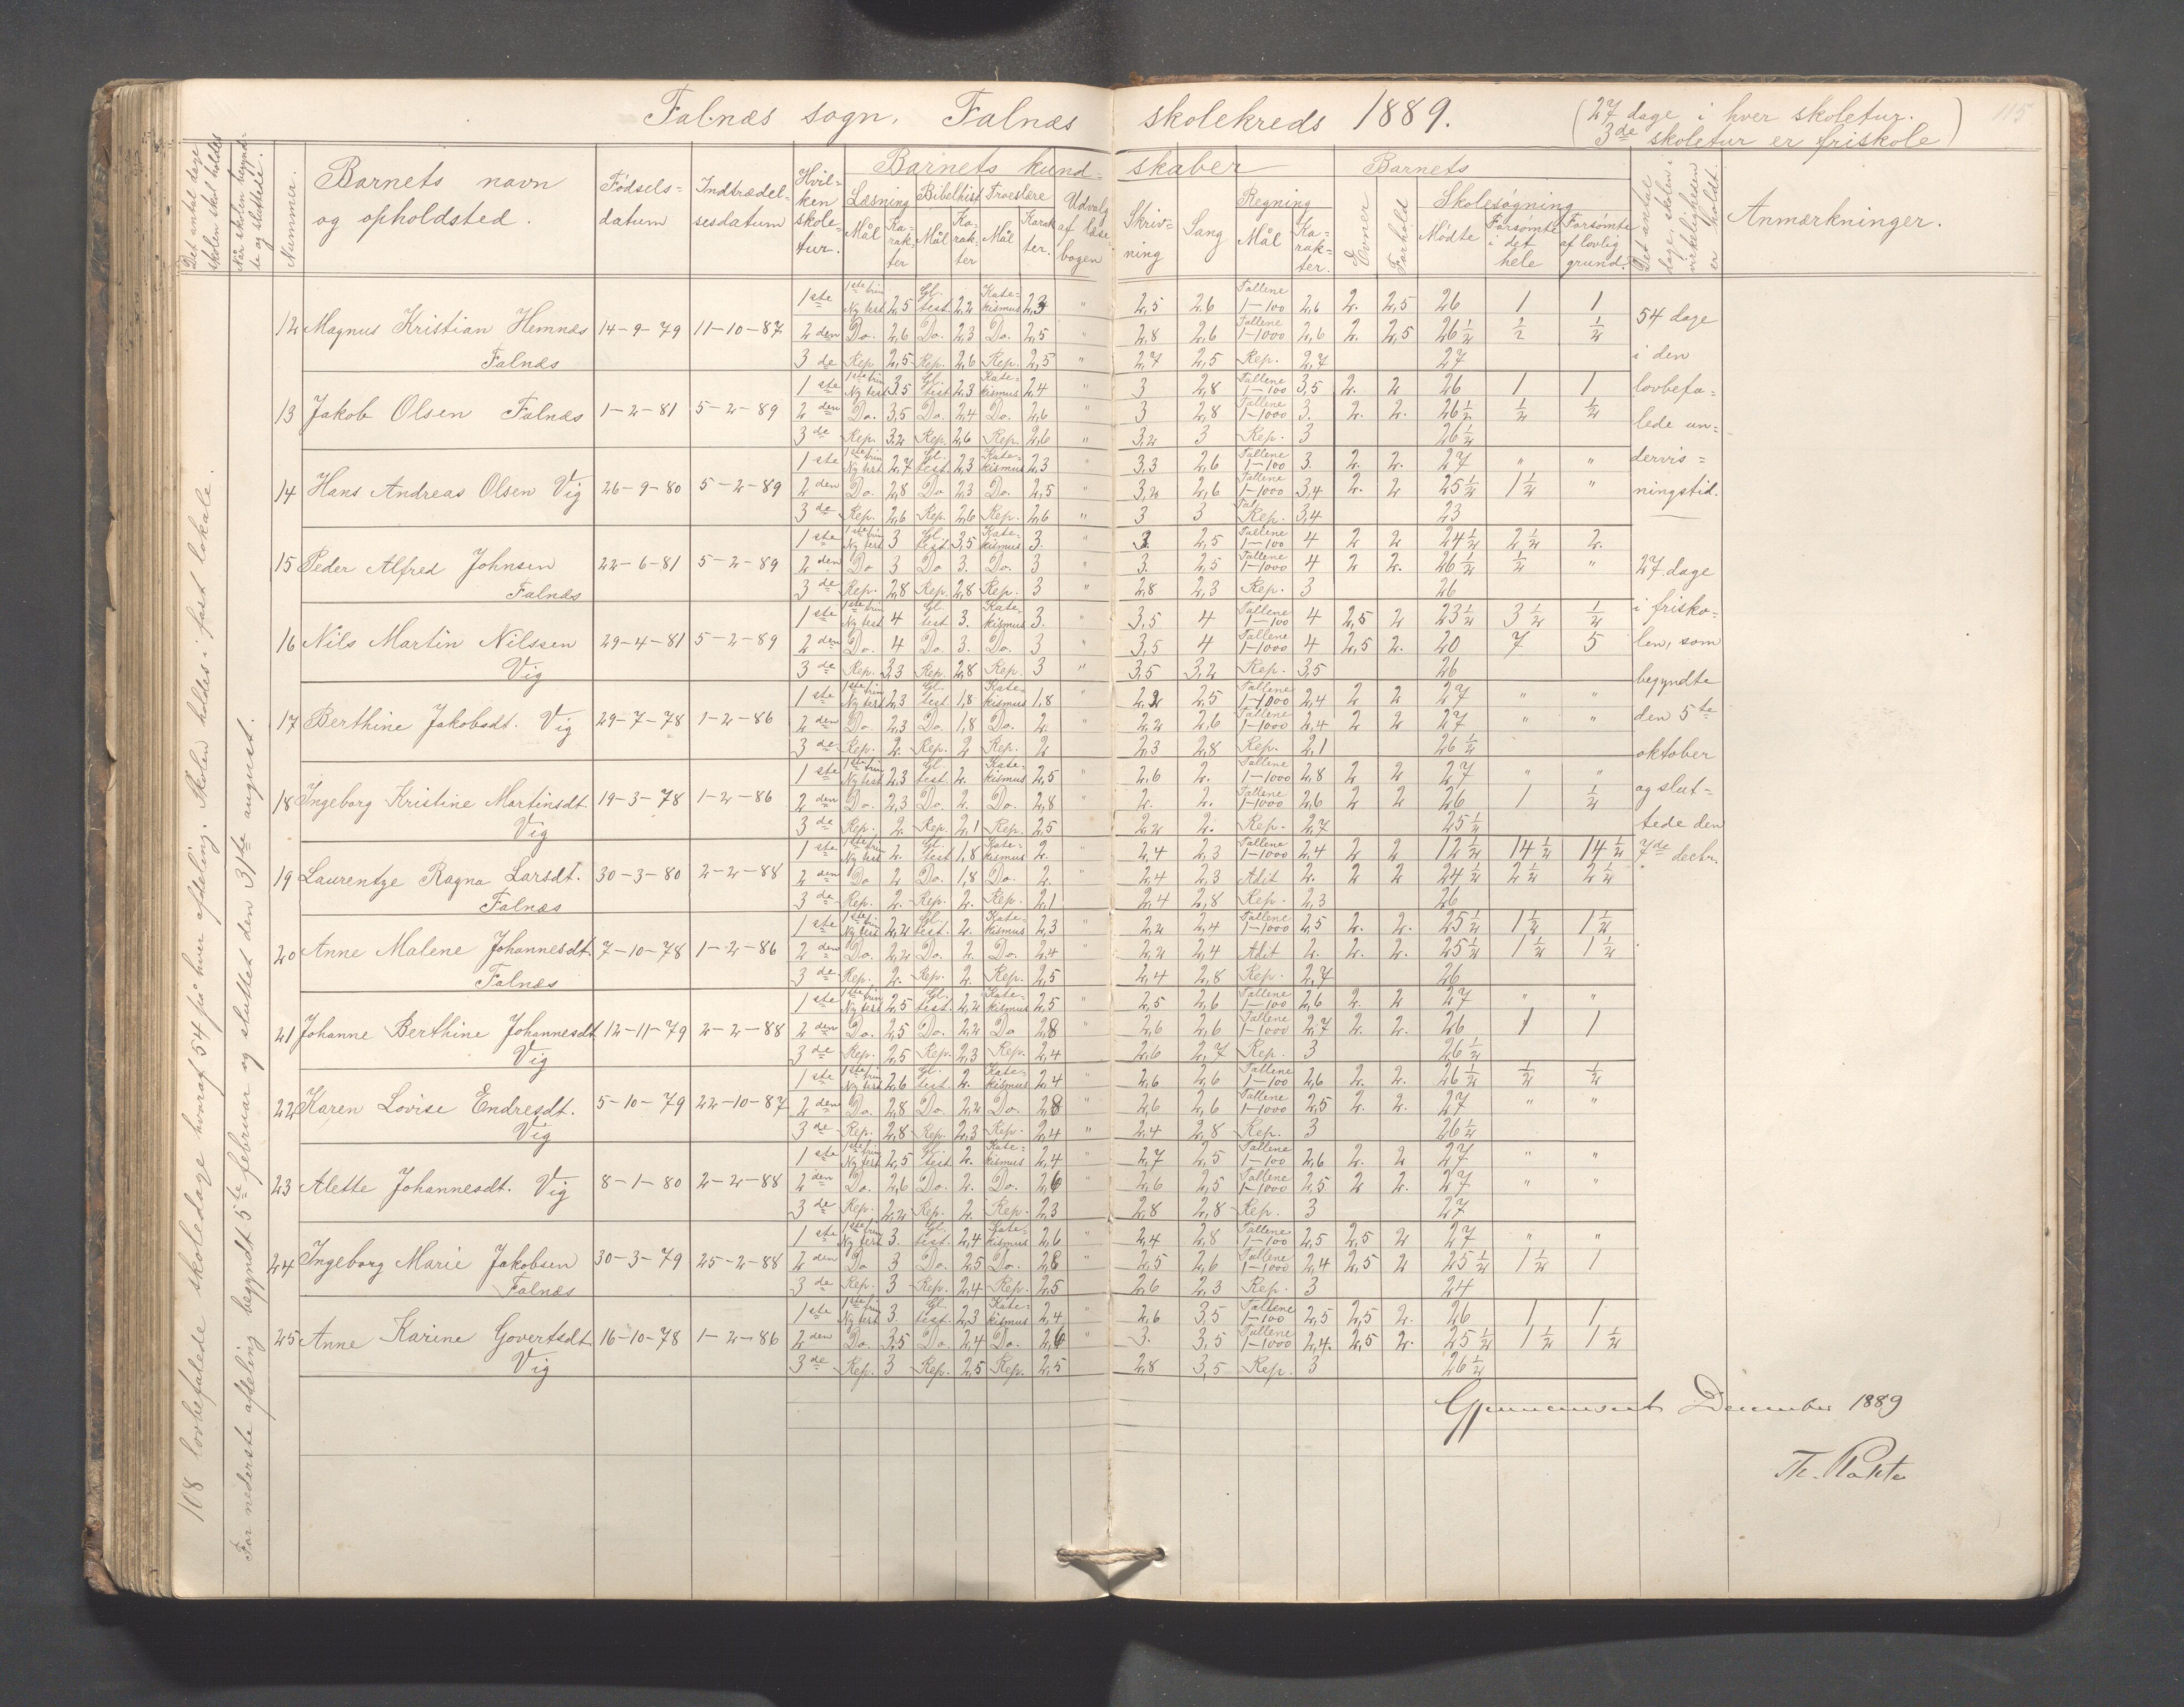 Falnæs sogn, Falnæs skolekreds 1889. (27 dage i hver skoletur.
3de skoletur er friskole)
115
Det antal dage skolen skal holdes
Når skolen begyndte og sluttede.
Nummer.
Barnets navn og opholdsted.
Fødselsdatum
Indtrædelsesdatum
Hvilken skoletur.
Barnets kundskaber
Læsning Mål Karakter
Bibelhist Mål Karakter
Troeslære Mål Karakter.
Udvalg af læsebogen
Skrivning
Sang
Regning Mål Karakter.
Barnets
Evner
Forhold
Skolesøgning
Mødte
Forsømte i det hele
Forsømte af lovlig grund.
Det antal dage, skolen i virkeligheden er holdt.
Anmærkninger.
108 lovbefalede skoledage hvoraf 54 på hver afdeling. Skolen holdes i fast lokale.
For nederste afdeling begyndt 5te februar og sluttet den 31te august.
12 Magnus Kristian Hemnæs Falnæs 14-9-79 11-10-87
1ste 1ste trin Ny test 2,5 Gl. test 2,2 Katekismus 2,3 " 2,5 2,6 Tallene 1-100 2,6 2. 2,5 26 1 1
2den Do. 2,6 Do. 2,3 Do. 2,5 " 2,8 2,6 Tallene 1-1000 2,6 2. 2,5 26½ ½ ½
3de Rep. 2,5 Rep. 2,6 Rep. 2,5 " 2,7 2,5 Rep. 2,7 27
13 Jakob Olsen Falnæs 1-2-81 5-2-89
1ste 1ste trin Ny test 3,5 Gl. test 2,3 Katekismus 2,4 " 3 2,8 Tallene 1-100 3,5 2. 2 26 1 1
2den Do. 3,5 Do. 2,4 Do. 2,6 " 3 2,8 Tallene 1-1000 3. 2. 2. 26½ ½ ½
3de Rep. 3,2 Rep. 2,6 Rep. 2,6 " 3,2 3 Rep. 3 26½
14 Hans Andreas Olsen Vig 26-9-80 5-2-89
1ste 1ste trin Ny test 2,7 Gl. test 2,3 Katekismus 2,3 " 3,3 2,6 Tallene 1-100 3. 2. 2. 27 " "
2den Do. 2,8 Do. 2,3 Do. 2,5 " 3,2 2,6 Tallene 1-1000 3,4 2. 2 25½ 1½ "
3de Rep. 2,6 Rep. 2,6 Rep. 2,6 " 3 3 Rep. 3,4 23
15 Peder Alfred Johnsen Falnæs 22-6-81 5-2-89
1ste 1ste trin Ny test 3 Gl. test 3,5 Katekismus 3. " 3 2,5 Tallene 1-100 4 2 2 24½ 2½ 2.
2den Do 3 Do 3. Do. 3 " 3. 2,5 Tallene 1-1000 4 2 2. 26½ ½ "
3de Rep. 2,8 Rep. 2,8 Rep. 3 " 2,8 2,3 Rep. 3 26
16 Nils Martin Nilssen Vig 29-4-81 5-2-89
1ste 1ste trin Ny test 4 Gl. test 3. Katekismus 3. " 3,5 4 Tallene 1-100 4 2,5 2 23½ 3½ ½
2den Do. 4 Do. 3. Do. 3 " 3,5 4 Tallene 1-1000 4 2,5 2. 20 7 5
3de Rep. 3,3 Rep. 2,8 Rep. 3 " 3,5 3,2 Rep. 3,5 26
17 Berthine Jakobsdt. Vig 29-7-78 1-2-86
1ste 1ste trin Ny test 2,3 Gl. test 1,8 Katekismus 1,8 " 2,2 2,5 Tallene 1-1000 2,4 2 2 27 " "
2den Do. 2,3 Do. 1,8 Do. 2. " 2,2 2,6 Tallene 1-1000 2,4 2 2 27 " "
3de Rep. 2. Rep. 2 Rep. 2 2,3 2,8 Rep. 2,1 26½
18 Ingeborg Kristine Martinsdt. Vig 19-3-78 1-2-86
1ste 1ste trin Ny test 2,3 Gl. test 2. Katekismus 2,5 " 2,6 2. Tallene 1-1000 2,8 2 2 27 " "
2den Do. 2,3 Do. 2. Do. 2,8 " 2. 2. Tallene 1-1000 2,6 2 2 26 1 ½
3de Rep. 2. Rep. 2,1 Rep. 2,5 2,2 2. Rep. 2,7 25½
19 Laurentze Ragna Larsdt. Falnæs 30-3-80 2-2-88
1ste 1ste trin Ny test 2. Gl. test 1,8 Katekismus 2. " 2,4 2,3 Tallene 1-1000 2,4 2 2 12½ 14½ 14½
2den Do 2 Do. 1,8 Do. 2. 2,4 2,3 Adit 2. 2 2 24½ 2½ 2½
3de Rep. 2. Rep. 2. Rep. 2,1 2,4 2,8 Rep. 2,3 26
20 Anne Malene Johannesdt. Falnæs 7-10-78 1-2-86
1ste 1ste trin Ny test 2,2 Gl. test. 2. Katekismus 2,3 " 2,2 2,4 Tallene 1-1000 2,5 2. 2. 25½ 1½ 1½
2den Do. 2,2 Do. 2 Do. 2,4 " 2,2 2,4 Adit 2. 2. 2. 25½ 1½ 1½
3de Rep. 2. Rep. 2. Rep. 2,5 2,4 2,8 Rep. 2,7 26
21 Johanne Berthine Johannesdt Vig 12-11-79 2-2-88
1ste 1ste trin Ny test 2,5 Gl. test. 2,2 Katekismus 2,5 " 2,5 2,6 Tallene 1-100 2,6 2. 2 27 " "
2den Do. 2,5 Do. 2,2 Do 2,8 " 2,6 2,6 Tallene 1-1000 2,7 2. 2. 26 1 1
3de Rep. 2,5 Rep. 2,3 Rep. 2,4 2,6 2,7 Rep. 3 26½
22 Karen Lovise Endresdt. Vig 5-10-79 22-10-87
1ste 1ste trin Ny test 2,6 Gl. test. 2. Katekismus 2,4 " 2,6 2,6 Tallene 1-100 2,6 2. 2. 26½ ½ ½
2den Do. 2,8 Do. 2,2 Do. 2,8 " 2,6 2,6 Tallene 1-1000 2,5 2. 2. 27 " "
3de Rep. 2,8 Rep. 2,3 Rep. 2,4 " 2,4 2,8 Rep. 3 26½
23 Alette Johannesdt. Vig 8-1-80 2-2-88
1ste 1ste trin Ny test 2,5 Gl. test 2. Katekismus 2,4 " 2,7 2,5 Tallene 1-100 2,6 2. 2 27 " "
2den Do. 2,6 Do. 2. Do. 2,6 " 2,6 2,5 Tallene 1-1000 2,5 2 2. 27 " "
3de Rep. 2,2 Rep. 2. Rep. 2,3 2,8 2,8 Rep. 3 27
24 Ingeborg Marie Jakobsen Falnæs 30-3-79 25-2-88
1ste 1ste trin Ny test 3. Gl. test. 2,4 Katekismus 2,6 " 2,4 2,8 Tallene 1-100 2,5 2,5 2 27 " "
2den Do 3 Do. 2,5 Do. 2,8 " 2,5 2,6 Tallene 1-1000 2,4 2,5 2 25½ 1½ 1
3de Rep. 3 Rep. 2,4 Rep. 2,5 2,6 2,3 Rep. 3 24
25 Anne Karine Govertsdt. Vig 16-10-78 1-2-86
1ste 1ste trin Ny test 3. Gl. test. 2,3 Katekismus 2,4 " 2,6 3,5 Tallene 1-100 2,5 2,5 2. 26 1 1
2den Do. 3,5 Do. 2,4 Do. 2,6 " 3. 3,5 Tallene 1-1000 2,4. 2,5 2. 25½ 1½ 1½
3de Rep. 3 Rep. 2,5 Rep. 2,5 2,8 3,5 Rep. 3 26½
54 dage
i den
lovbefa=
lede un=
dervis=
ningstid.
27 dage
i frisko=
len, som
begyndte
den 5te
oktober
og slut=
tede den
7de decbr.
Gjennemseet December 1889